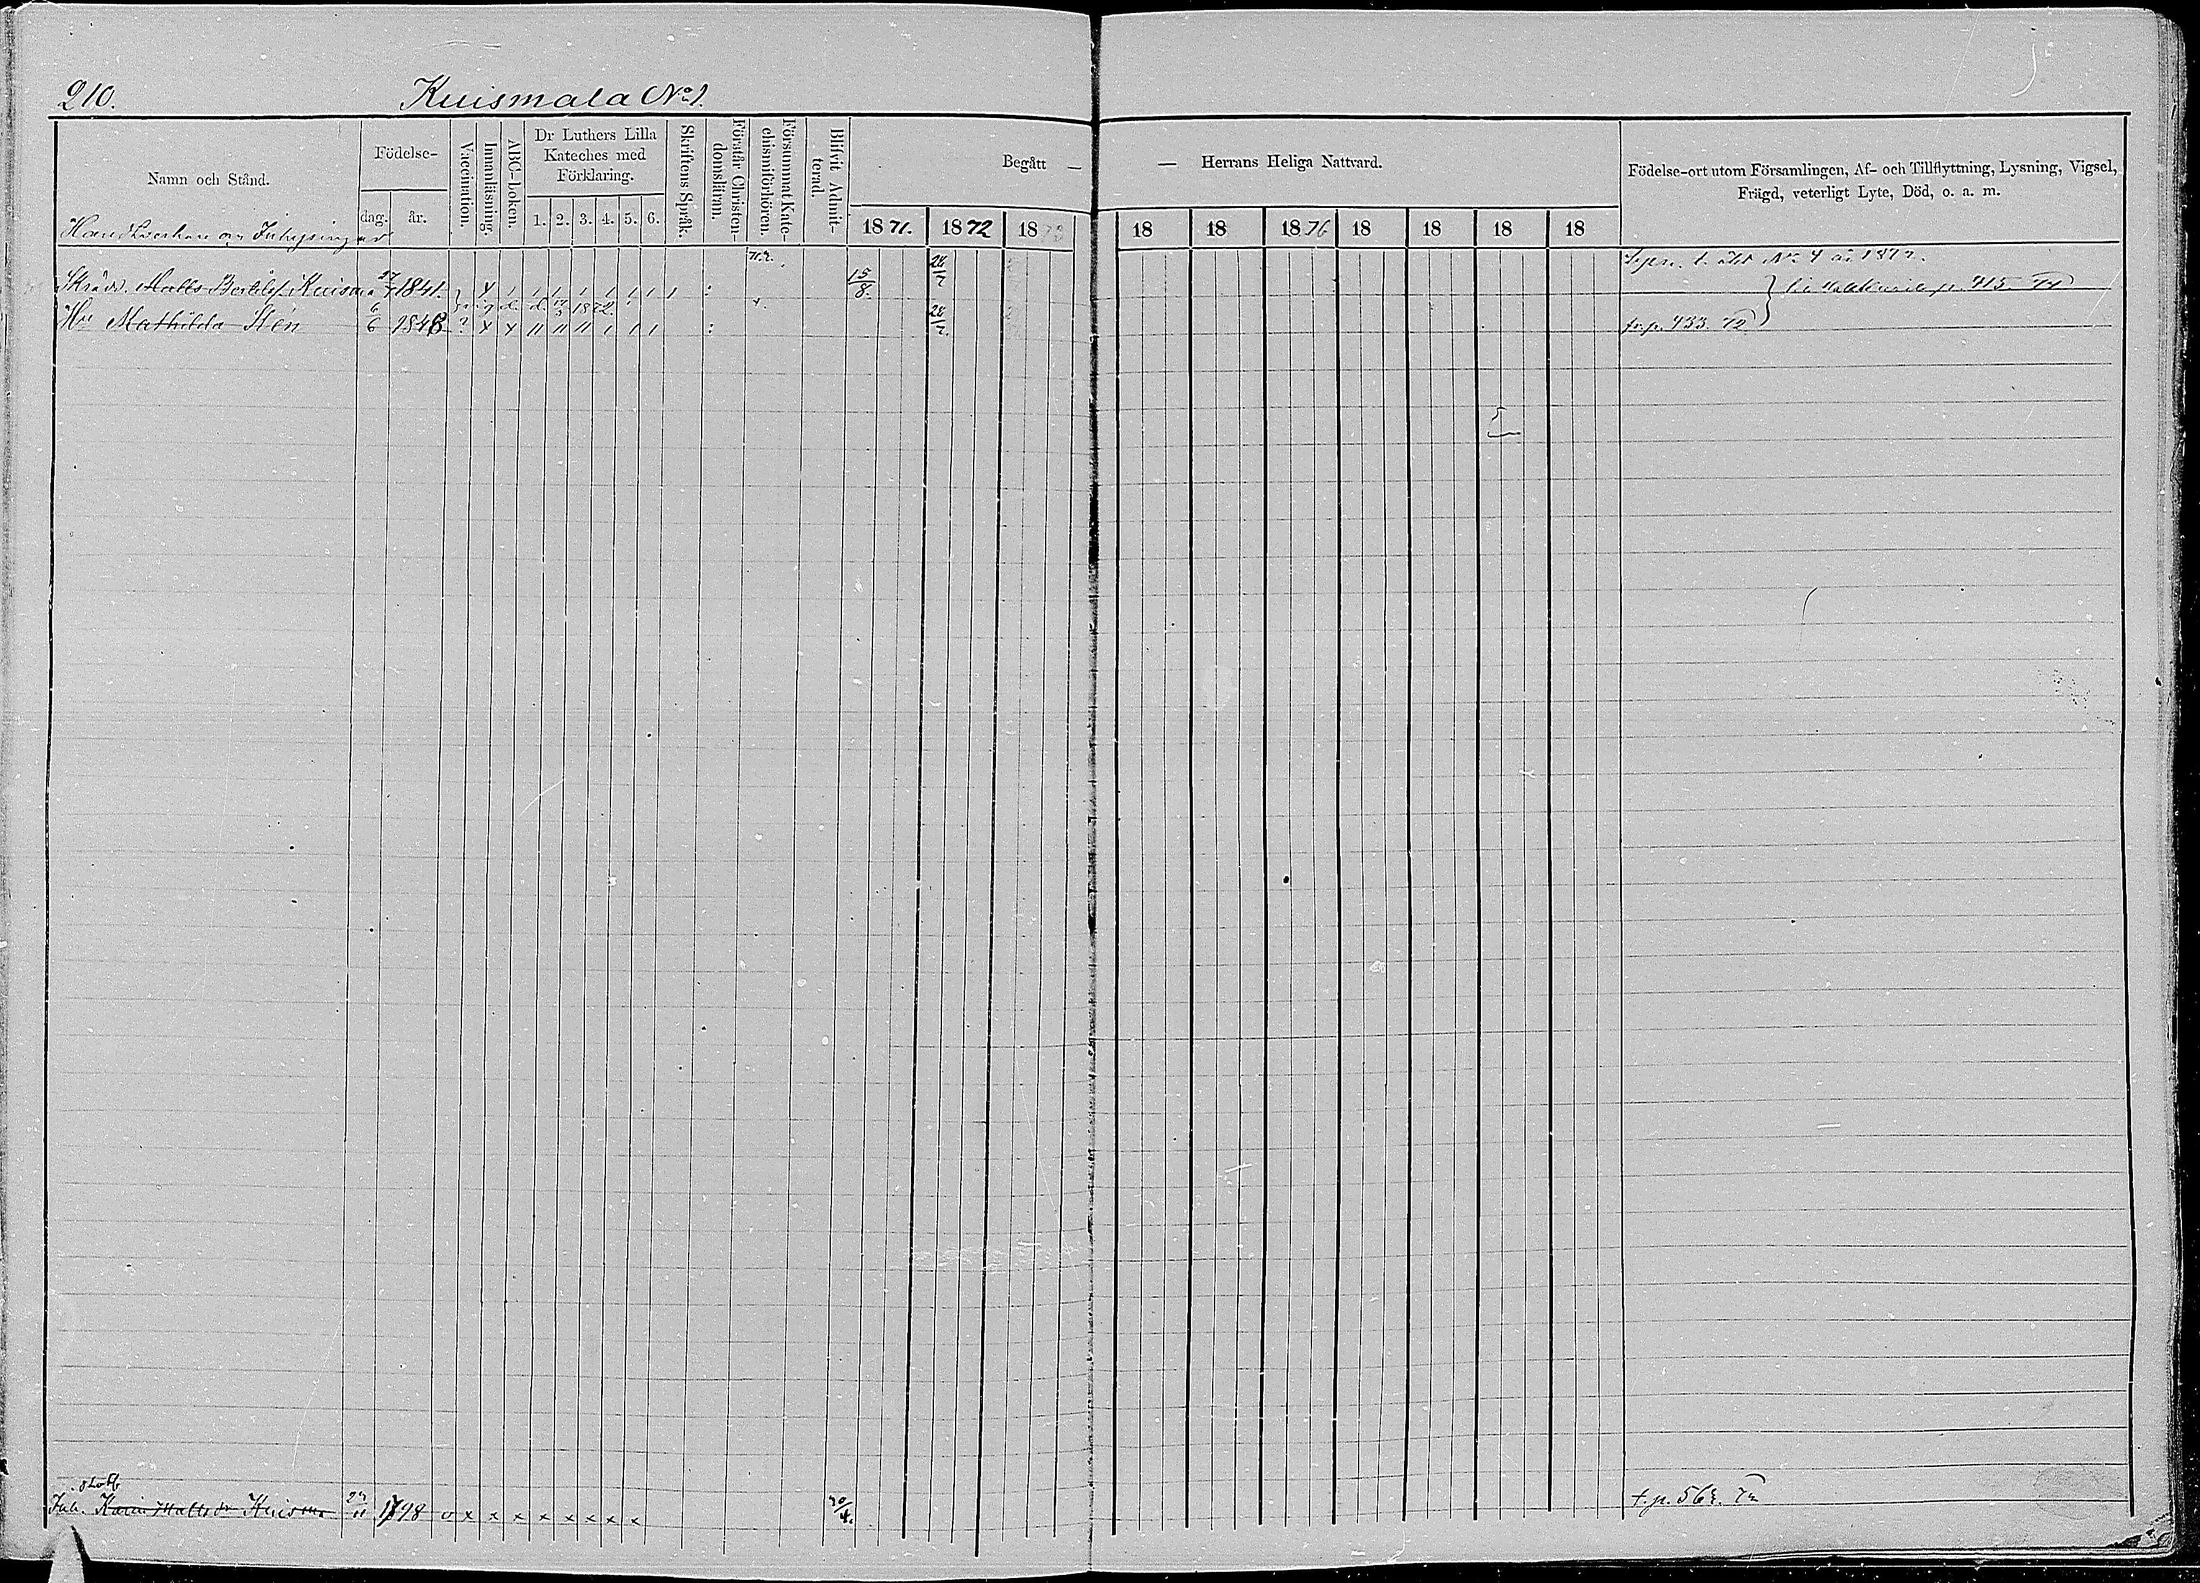 210. Kuismala No 1.
Namn och Stånd.
Födelse-
dag. år.
Vaccination.
Innanläsning.
ABC-boken.
Dr Luthers Lilla
Kateches med
Förklaring.
1. 2. 3. 4. 5. 6.
Skriftens Språk.
Förstår Christen-
domsläran.
Försummat Kate-
chismiförhören.
Blifvit Admit-
terad.
Begått —
1871. 1872 1873
— Herrans Heliga Nattvard.
18 18 1876 18 18 18 18
Födelse-ort utom Församlingen, Af- och Tillflyttning, Lysning, Vigsel,
Frägd, veterligt Lyte, Död, o. a. m.
Skrädd. Matts Bertilsf Kuisma 27/7 1841. 15/8. 28/7
vigd. d. 1872
Hu Mathilda Sten 6/6 1848 28/7. fr. p. 433. 72
p. 415 74
Inh. Karin Mattsdr Kuisma 1798 o x x x x x x x x t. p. 563. 72